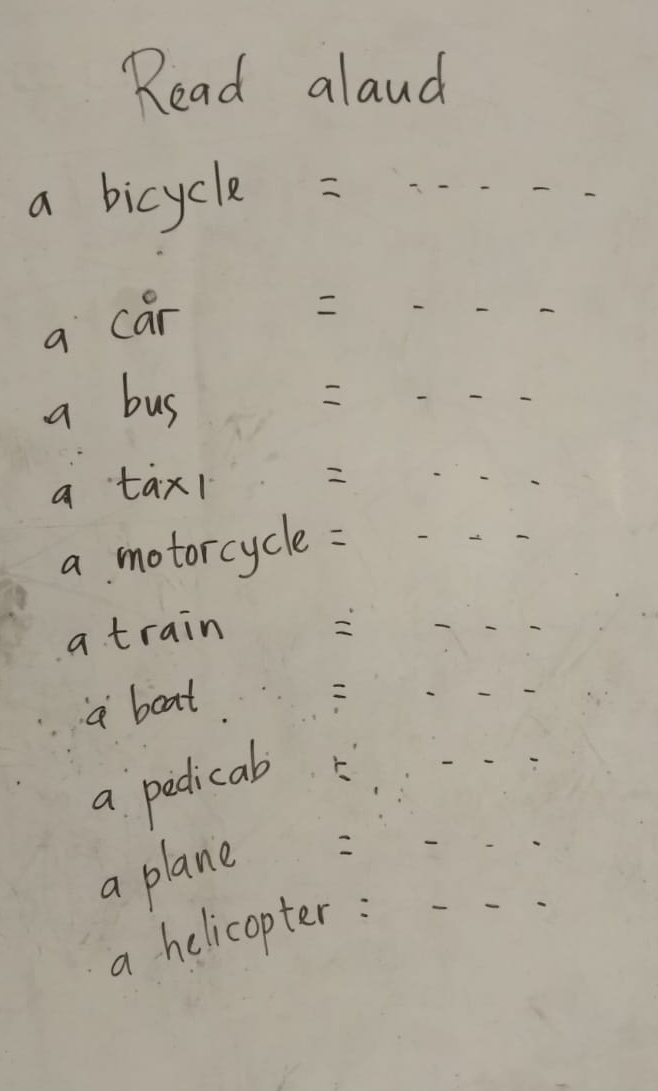 Read alaud
a bicycle = - - - - -
a car = - - -
a bus = - - -
a taxi = - - -
a motorcycle = - - -
a train = - - -
a boat = - - -
a pedicab = - - -
a plane = - - -
a helicopter = - - -